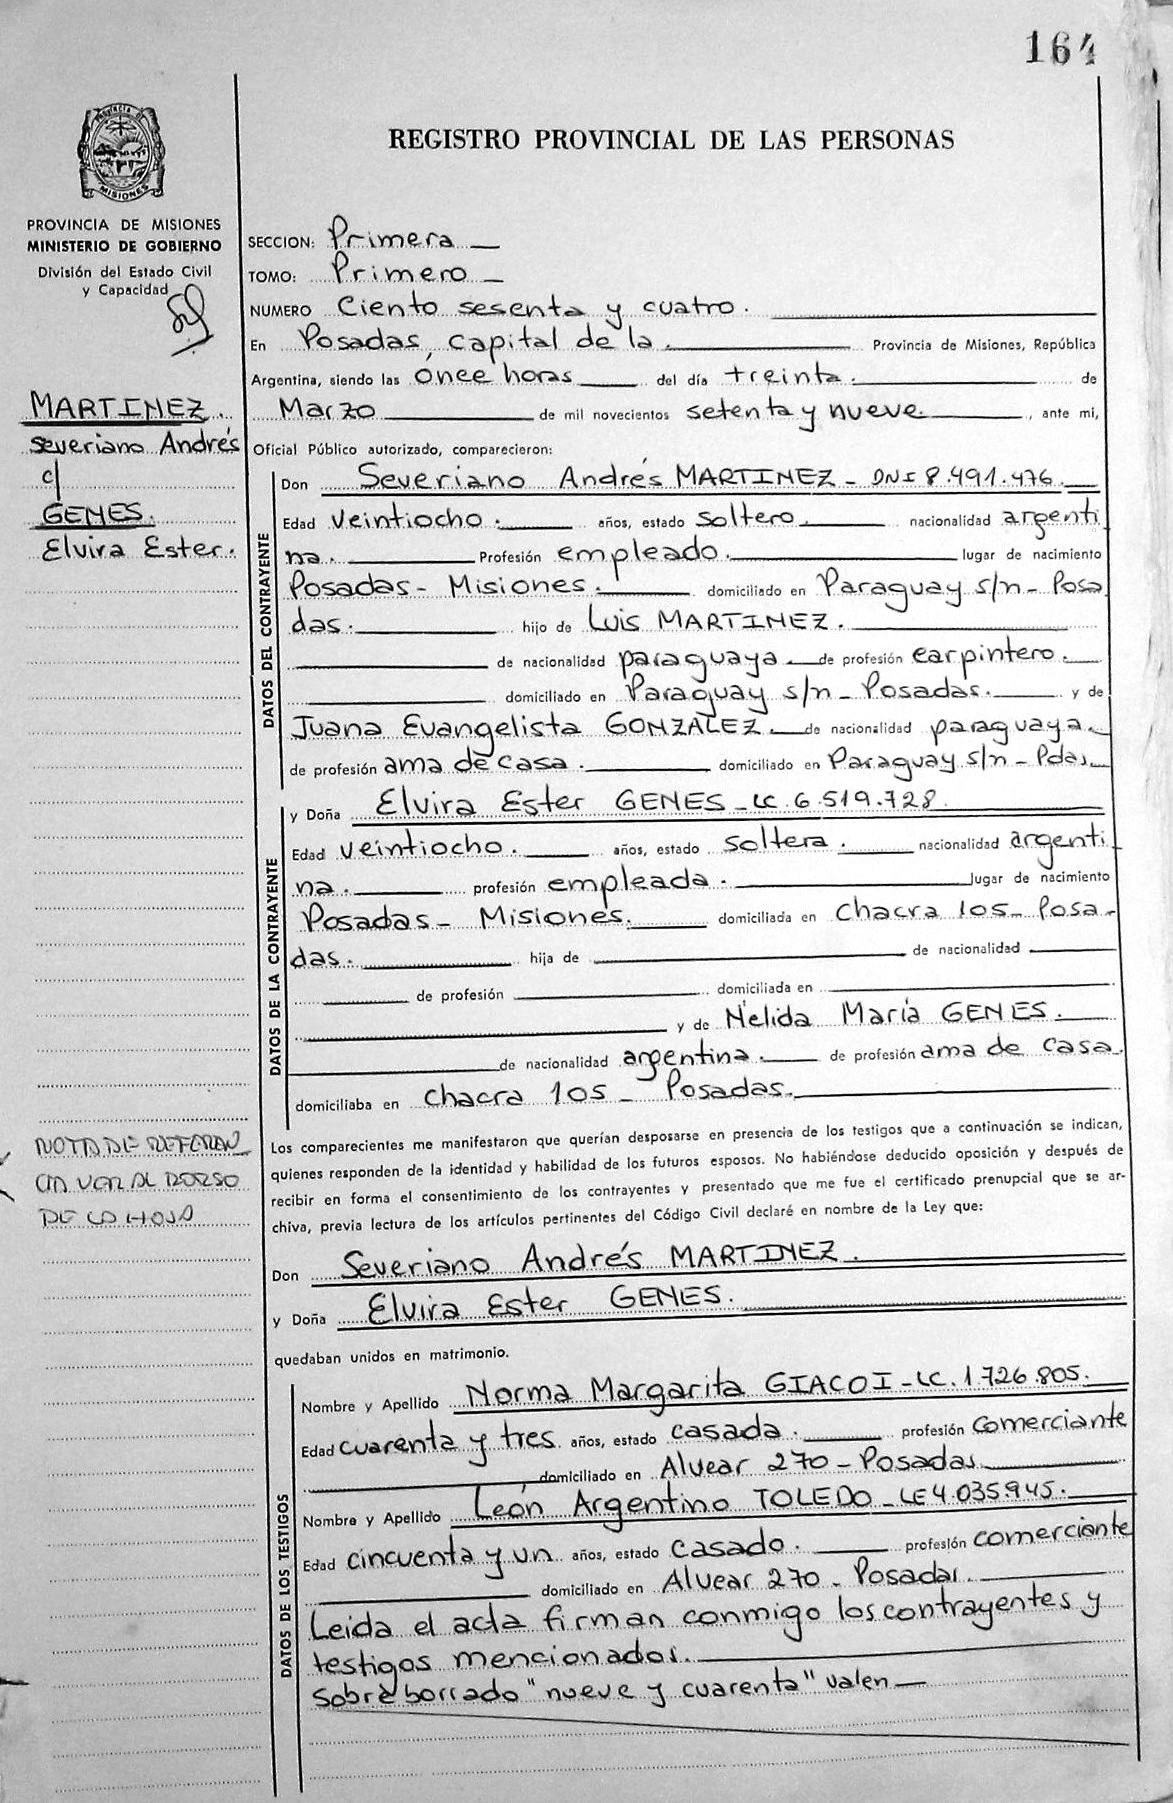 164
PROVINCIA DE
MISIONES
REGISTRO PROVINCIAL DE LAS PERSONAS
PROVINCIA DE MISIONES
MINISTERIO DE GOBIERNO
División del Estado Civil
y Capacidad
MARTINEZ.
Severiano Andrés
c/
GENES.
Elvira Ester.
SECCION: Primera
TOMO: Primero
NUMERO Ciento sesenta y cuatro.
En Posadas, capital de la. Provincia de Misiones, República
Argentina, siendo las Once horas del día treinta. de
Marzo de mil novecientos setenta y nueve. , ante mi,
Oficial Público autorizado, comparecieron:
DATOS DEL CONTRAYENTE
Don Severiano Andrés MARTINEZ - DNI 8.491.476.
Edad veintiocho. años, estado soltero. nacionalidad argenti
na. Profesión empleado. lugar de nacimiento
Posadas - Misiones. domiciliado en Paraguay s/n - Posa
das. hijo de Luis MARTINEZ.
de nacionalidad paraguaya. de profesión carpintero.
domiciliado en Paraguay s/n - Posadas. y de
Juana Evangelista GONZALEZ. de nacionalidad paraguaya.
de profesión ama de casa. domiciliado en Paraguay s/n - Pdas.
DATOS DE LA CONTRAYENTE
y Doña Elvira Ester GENES - LC. 6.519.728.
Edad veintiocho. años, estado soltera. nacionalidad argenti
na. profesión empleada. lugar de nacimiento
Posadas - Misiones. domiciliada en Chacra 105 - Posa-
das. hija de de nacionalidad
de profesión domiciliada en
y de Nélida María GENES.
de nacionalidad argentina. de profesión ama de casa.
domiciliaba en Chacra 105 - Posadas.
NOTA DE REFEREN
CIA VER AL DORSO
DE LA HOJA
Los comparecientes me manifestaron que querían desposarse en presencia de los testigos que a continuación se indican,
quienes responden de la identidad y habilidad de los futuros esposos. No habiéndose deducido oposición y después de
recibir en forma el consentimiento de los contrayentes y presentado que me fue el certificado prenupcial que se ar-
chiva, previa lectura de los artículos pertinentes del Código Civil declaré en nombre de la Ley que:
Don Severiano Andrés MARTINEZ.
y Doña Elvira Ester GENES.
quedaban unidos en matrimonio.
DATOS DE LOS TESTIGOS
Nombre y Apellido Norma Margarita GIACOI - LC. 1.726.805.
Edad cuarenta y tres años, estado casada. profesión comerciante
domiciliado en Alvear 270 - Posadas
Nombre y Apellido León Argentino TOLEDO - LE 4.035.945.
Edad cincuenta y un años, estado casado. profesión comerciante
domiciliado en Alvear 270 - Posadas.
Leida el acta firman conmigo los contrayentes y
testigos mencionados.
Sobre borrado "nueve y cuarenta" valen